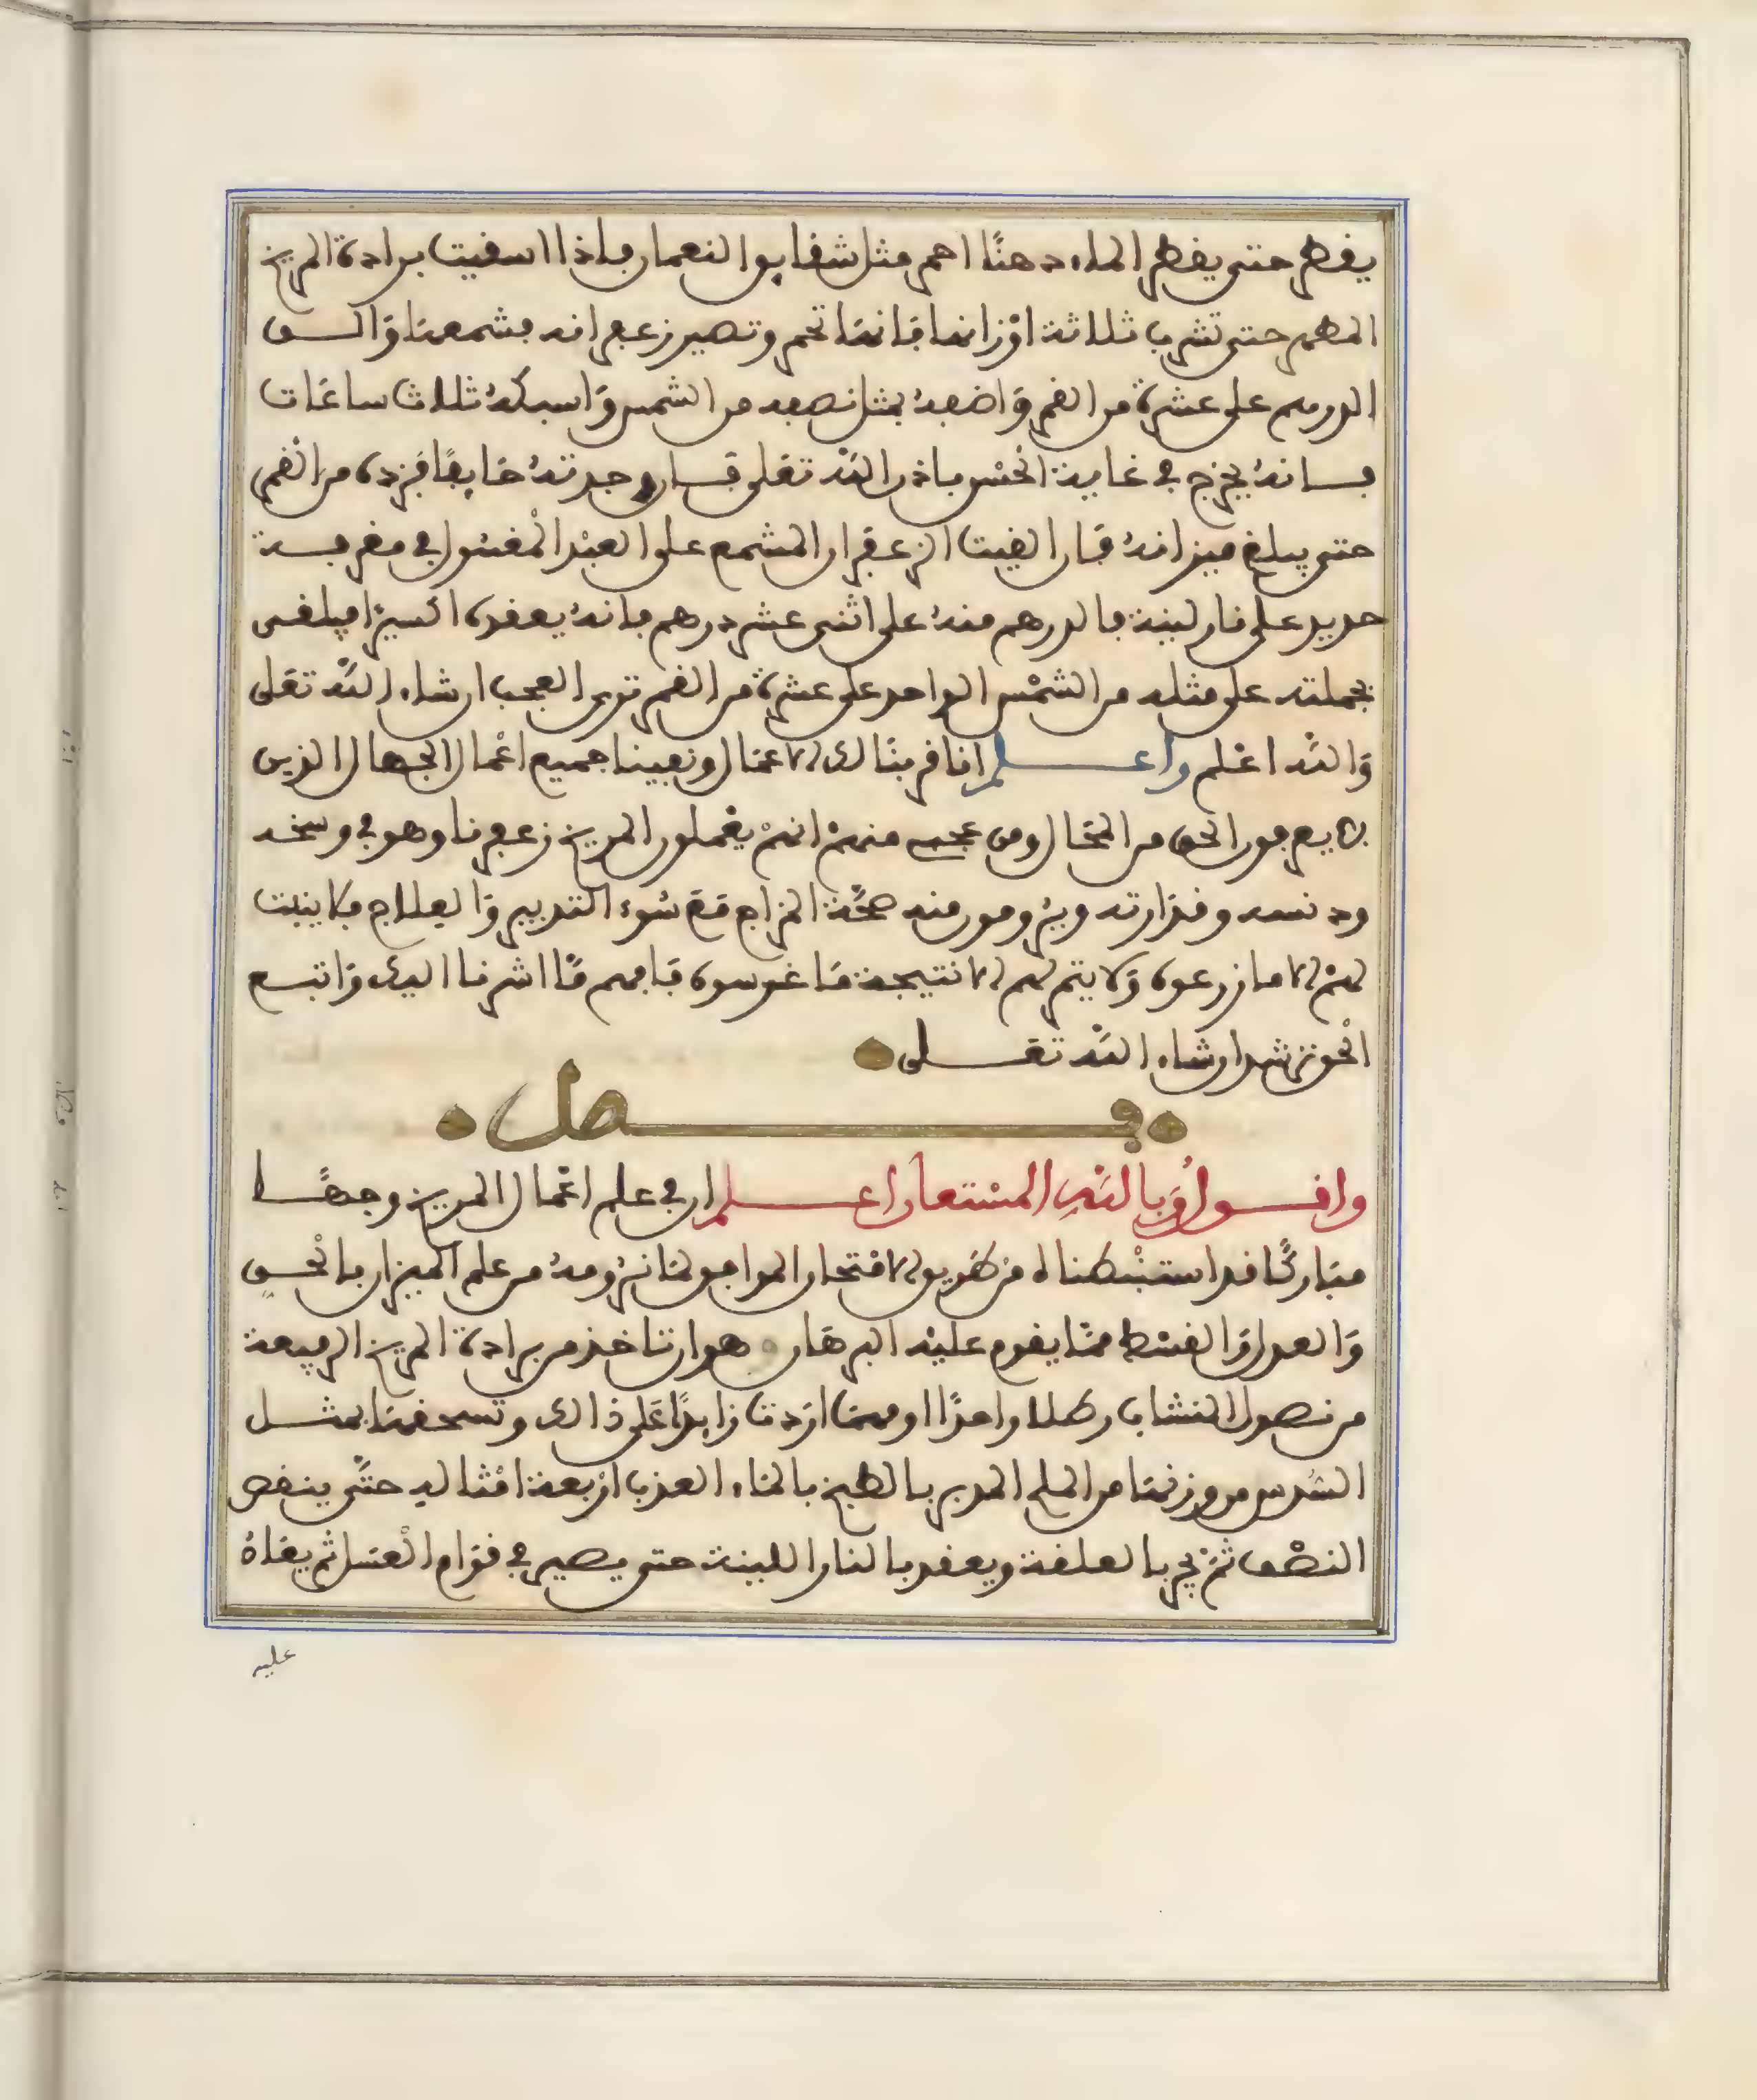 يقطر حتى يقطر الماء دهنًا احمر مثل شقايق النعمان فاذا اسقيت برادة المريخ
المطهر حتى تشرب ثلاثة اوزانها فانها تحمر وتصير زعفرانه فشمعها والــق
الدرهم على عشرة من القمر واضفه بمثل نصفه من الشمس واسبكه ثلاث ساعات
فــانه يخرج في غاية الحسن باذن الله تعلى فــان وجدته خايفًا فزده من القمر
حتى يبلغ ميزانه فان القيت الزعفران المشمع على العبد المغسول في مغرفــة
حديد على نار لينة فالدرهم منه على اثنى عشر درهم فانه يعقده اكسيرا فيلقى
بجملته على مثله من الشمس الواحد على عشرة من القمر ترى العجب ان شاء الله تعلى
والله اعلم واعــلم انا قربنا لك الاعمال ونفينا جميع اعمال الجهال الذين
لا يعرفون الحق من المحال ومن عجب منهم انهم يعملون المريخ زعفرنا وهو في وسخه
ودنسه وقذارته ويرومون منه صحة المزاج مع سوء التدبير والعلاج فلا ينبت
لهم الا ما زرعوه ولا يتم لهم الا نتيجة ما غرسوه فافهم ما اشرنا اليك واتبــع
الحق ترشد ان شاء الله تعــلى
فــصل
واقــول وبالله المستعان اعــلم ان في علم اعمال المريخ وجهــا
مباركًا قد استنبطناه من طريق الامتحان الموافق لما نرومه من علم الميزان بالحــق
والعدل والقسط مما يقوم عليه البرهان وهو ان تاخذ من برادة المريخ الرفيعة
من نصول النشاب رطلا واحدًا او مهما اردت زايدًا على ذالك وتسحقها بمثــل
السدس من وزنها من الملح المدبر بالطبخ بالماء العذب اربعة امثاليه حتى ينقص
النصف ثم يجر بالعلقة ويعقد بالنار اللينة حتى يصير في قوام العسل ثم يغلاه
عليه